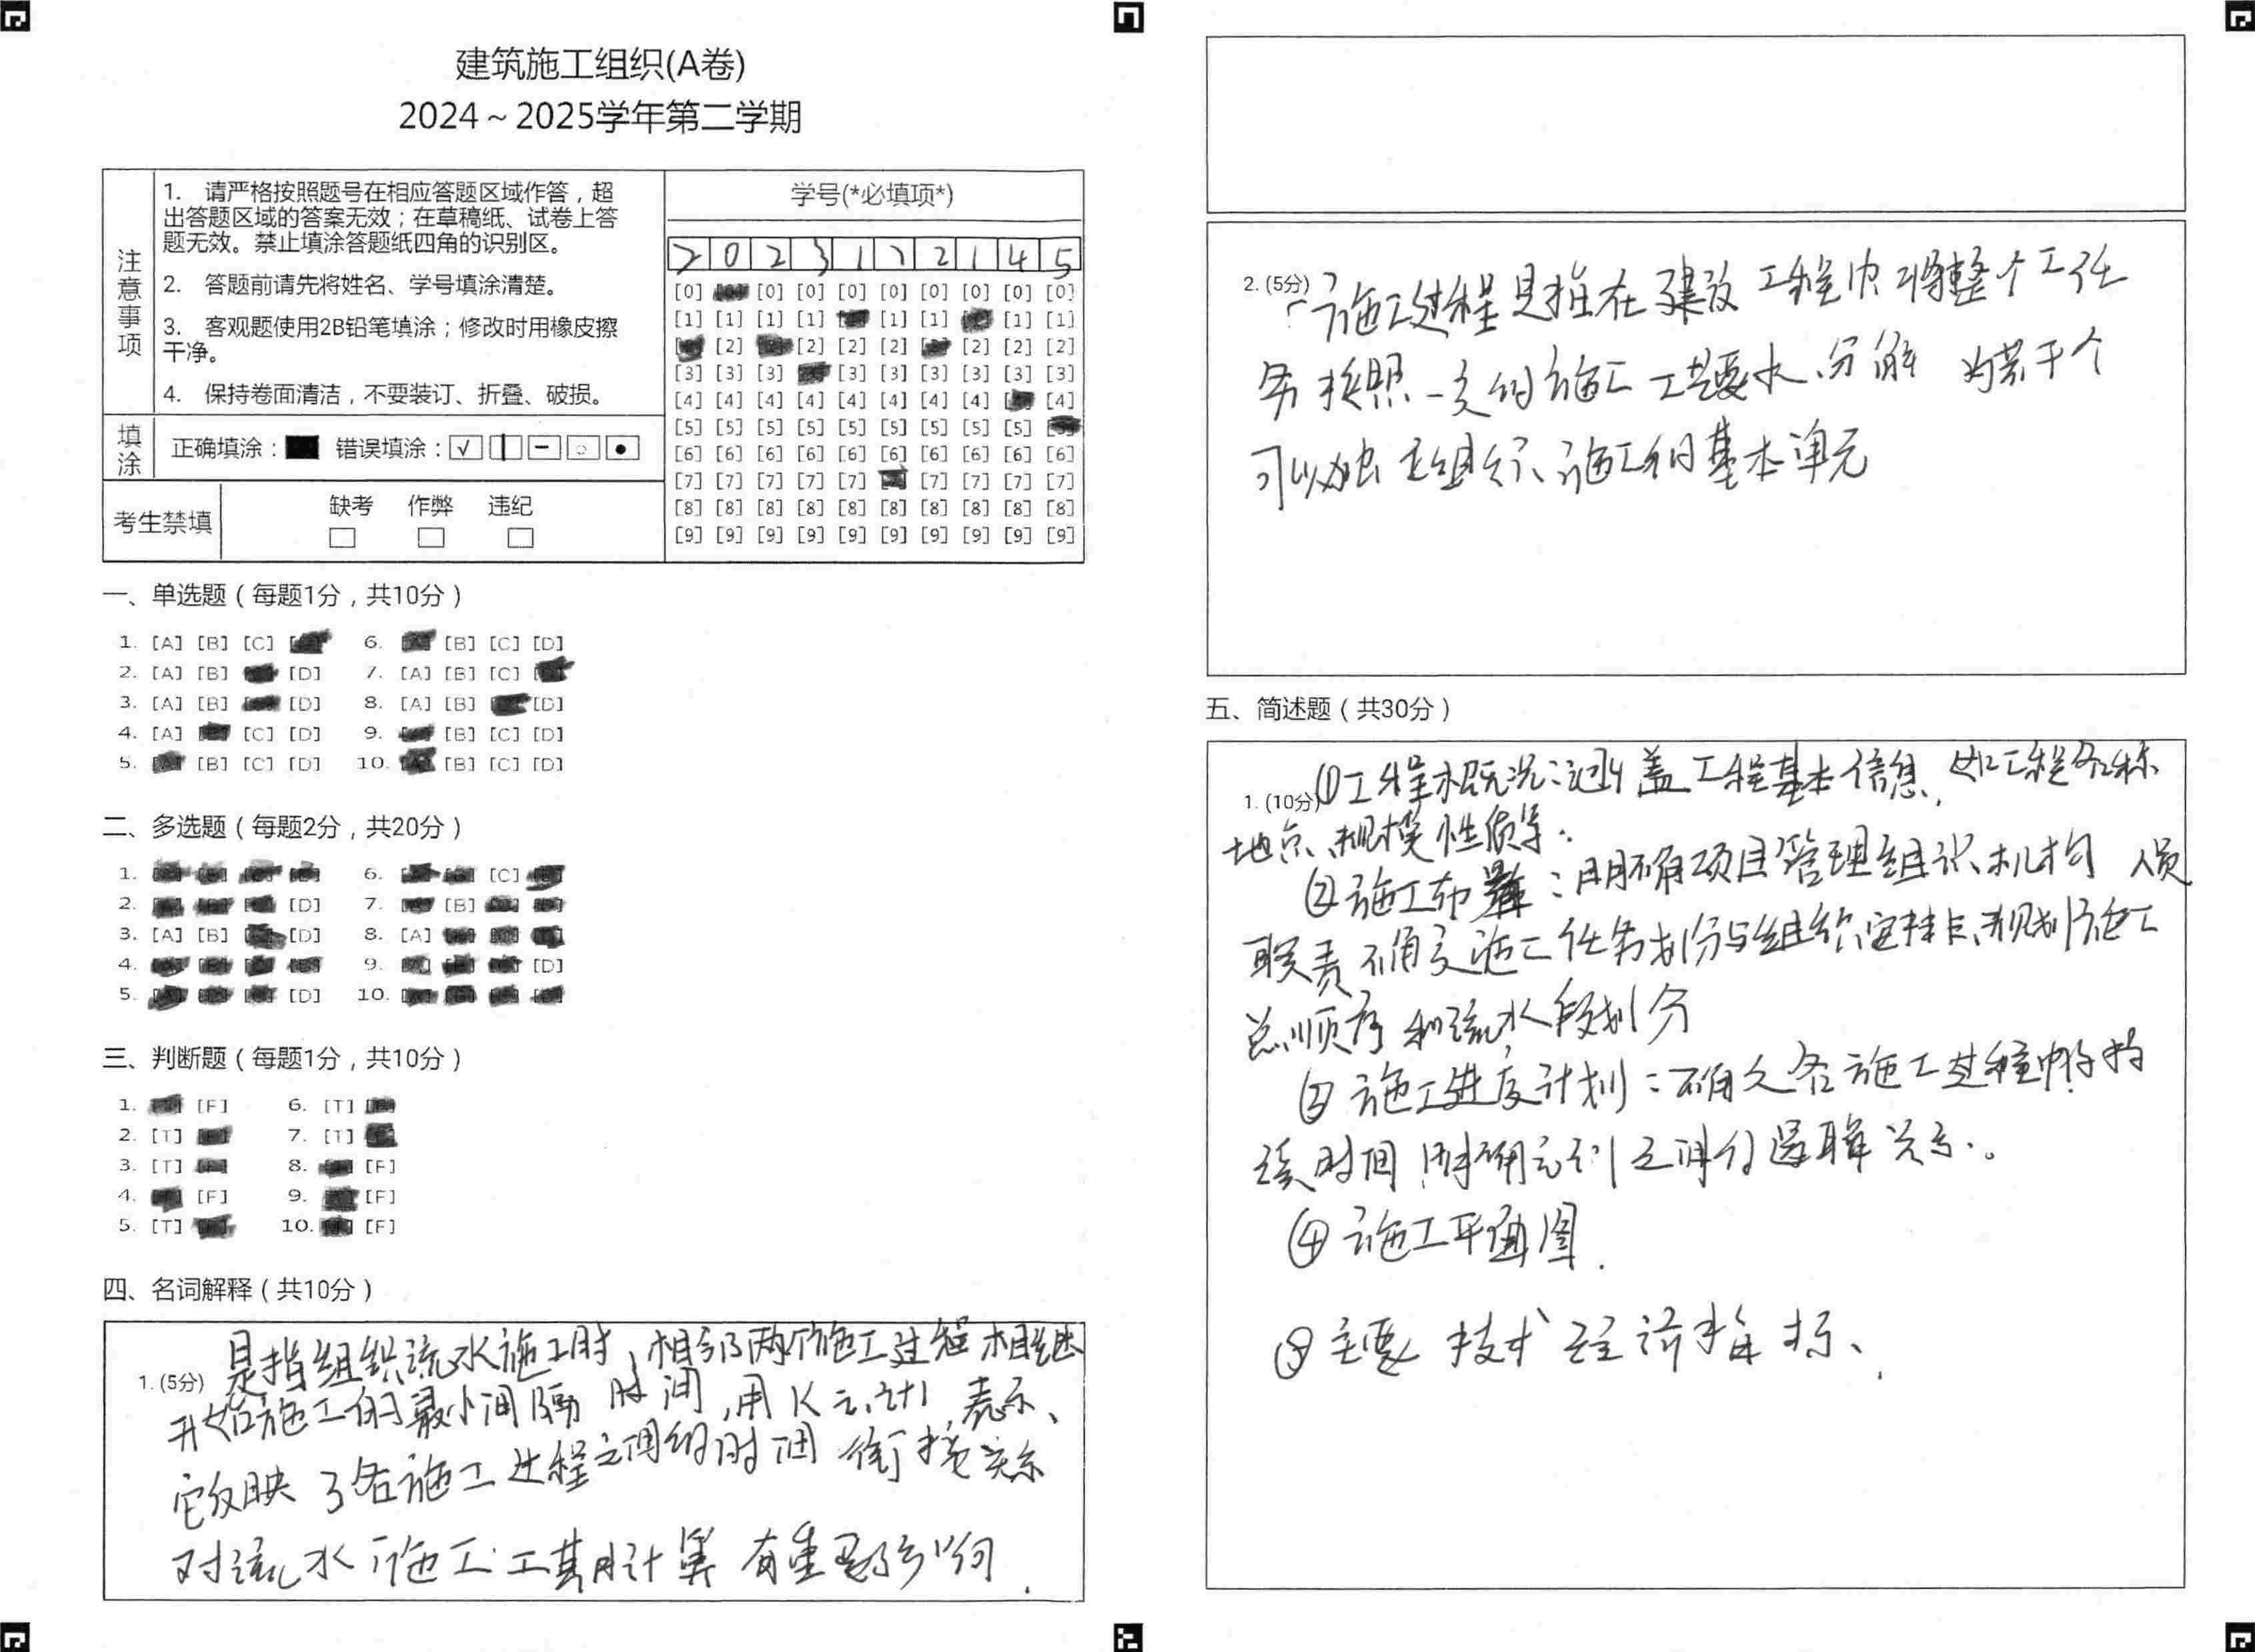 建筑施工组织(A卷)
2024～2025学年第二学期
注意事项
1. 请严格按照题号在相应答题区域作答，超
出答题区域的答案无效；在草稿纸、试卷上答
题无效。禁止填涂答题纸四角的识别区。
2. 答题前请先将姓名、学号填涂清楚。
3. 客观题使用2B铅笔填涂；修改时用橡皮擦
干净。
4. 保持卷面清洁，不要装订、折叠、破损。
填涂
正确填涂： 错误填涂：
考生禁填
缺考 作弊 违纪
学号(*必填项*)
2 0 2 3 1 7 2 1 4 5
[0] [0] [0] [0] [0] [0] [0] [0] [0]
[1] [1] [1] [1] [1] [1] [1] [1]
[2] [2] [2] [2] [2] [2]
[3] [3] [3] [3] [3] [3] [3] [3] [3]
[4] [4] [4] [4] [4] [4] [4] [4] [4]
[5] [5] [5] [5] [5] [5] [5] [5] [5]
[6] [6] [6] [6] [6] [6] [6] [6] [6] [6]
[7] [7] [7] [7] [7] [7] [7] [7] [7]
[8] [8] [8] [8] [8] [8] [8] [8] [8] [8]
[9] [9] [9] [9] [9] [9] [9] [9] [9] [9]
一、单选题（每题1分，共10分）
1. [A] [B] [C] 6. [B] [C] [D]
2. [A] [B] [D] 7. [A] [B] [C]
3. [A] [B] [D] 8. [A] [B] [D]
4. [A] [C] [D] 9. [B] [C] [D]
5. [B] [C] [D] 10. [B] [C] [D]
二、多选题（每题2分，共20分）
1. 6. [C]
2. [D] 7. [B]
3. [A] [B] [D] 8. [A]
4. 9. [D]
5. [D] 10.
三、判断题（每题1分，共10分）
1. [F] 6. [T]
2. [T] 7. [T]
3. [T] 8. [F]
4. [F] 9. [F]
5. [T] 10. [F]
四、名词解释（共10分）
1. (5分) 是指组织流水施工时，相邻两个施工过程相继
开始施工的最小间隔时间，用K 表示、
它反映了各施工过程之间的时间衔接关系
对流水施工工期计算有重要影响.
2. (5分) 施工过程是指在建设工程中将整个工任
务按照一定的施工工艺要求、分解为若干个
可以独立组织、施工的基本单元
五、简述题（共30分）
1. (10分) ①工程概况：涵盖工程基本信息、如工程名称
地点、规模性质等.
②施工部署：明确项目管理组织机构 人员
职责 确定施工任务划分与组织安排、规划施工
总顺序和流水段划分
③施工进度计划：确定各施工过程
时间 逻辑关系.。
④施工平面图.
⑤主要技术经济指标、